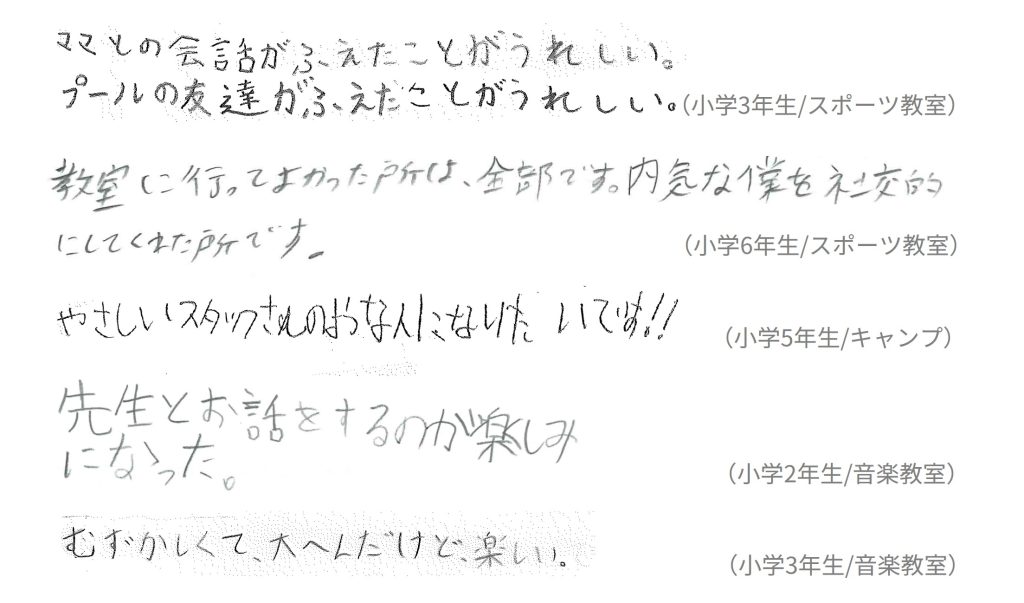 ママとの会話がふえたことがうれしい。
プールの友達がふえたことがうれしい。(小学3年生/スポーツ教室)
教室に行ってよかった所は、全部です。内気な僕を社交的
にしてくれた所です。(小学6年生/スポーツ教室)
やさしいスタッフさんのような人になりたいです!!(小学5年生/キャンプ)
先生とお話をするのが楽しみ
になった。(小学2年生/音楽教室)
むずかしくて、大へんだけど、楽しい。(小学3年生/音楽教室)